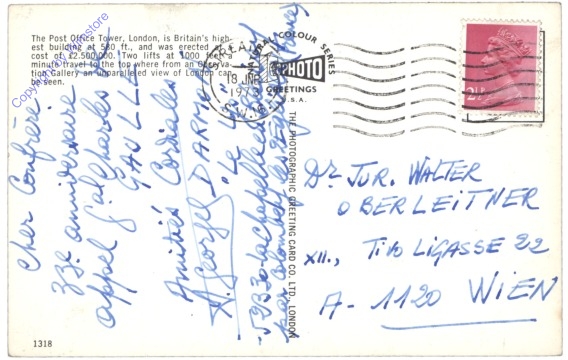 The Post Office Tower, London, is Britain's high-
est building at 580 ft., and was erected at a
cost of £2.500.000. Two lifts at 1000 feet a
minute travel to the top where from an observa-
tion Gallery an unparalleled view of London can
be seen.
Cher Confrère
33e anniversaire
appel Gal Charles
GAULLE
Amitiés Cordiales
NATURAL COLOUR SERIES
PHOTO
GREETINGS
S.A.
13 JNE
S.W.
2½P
THE PHOTOGRAPHIC GREETING CARD CO. LTD., LONDON
Dr JUR. WALTER
OBERLEITNER
XII., TIVOLIGASSE 22
A - 1120 WIEN
1318